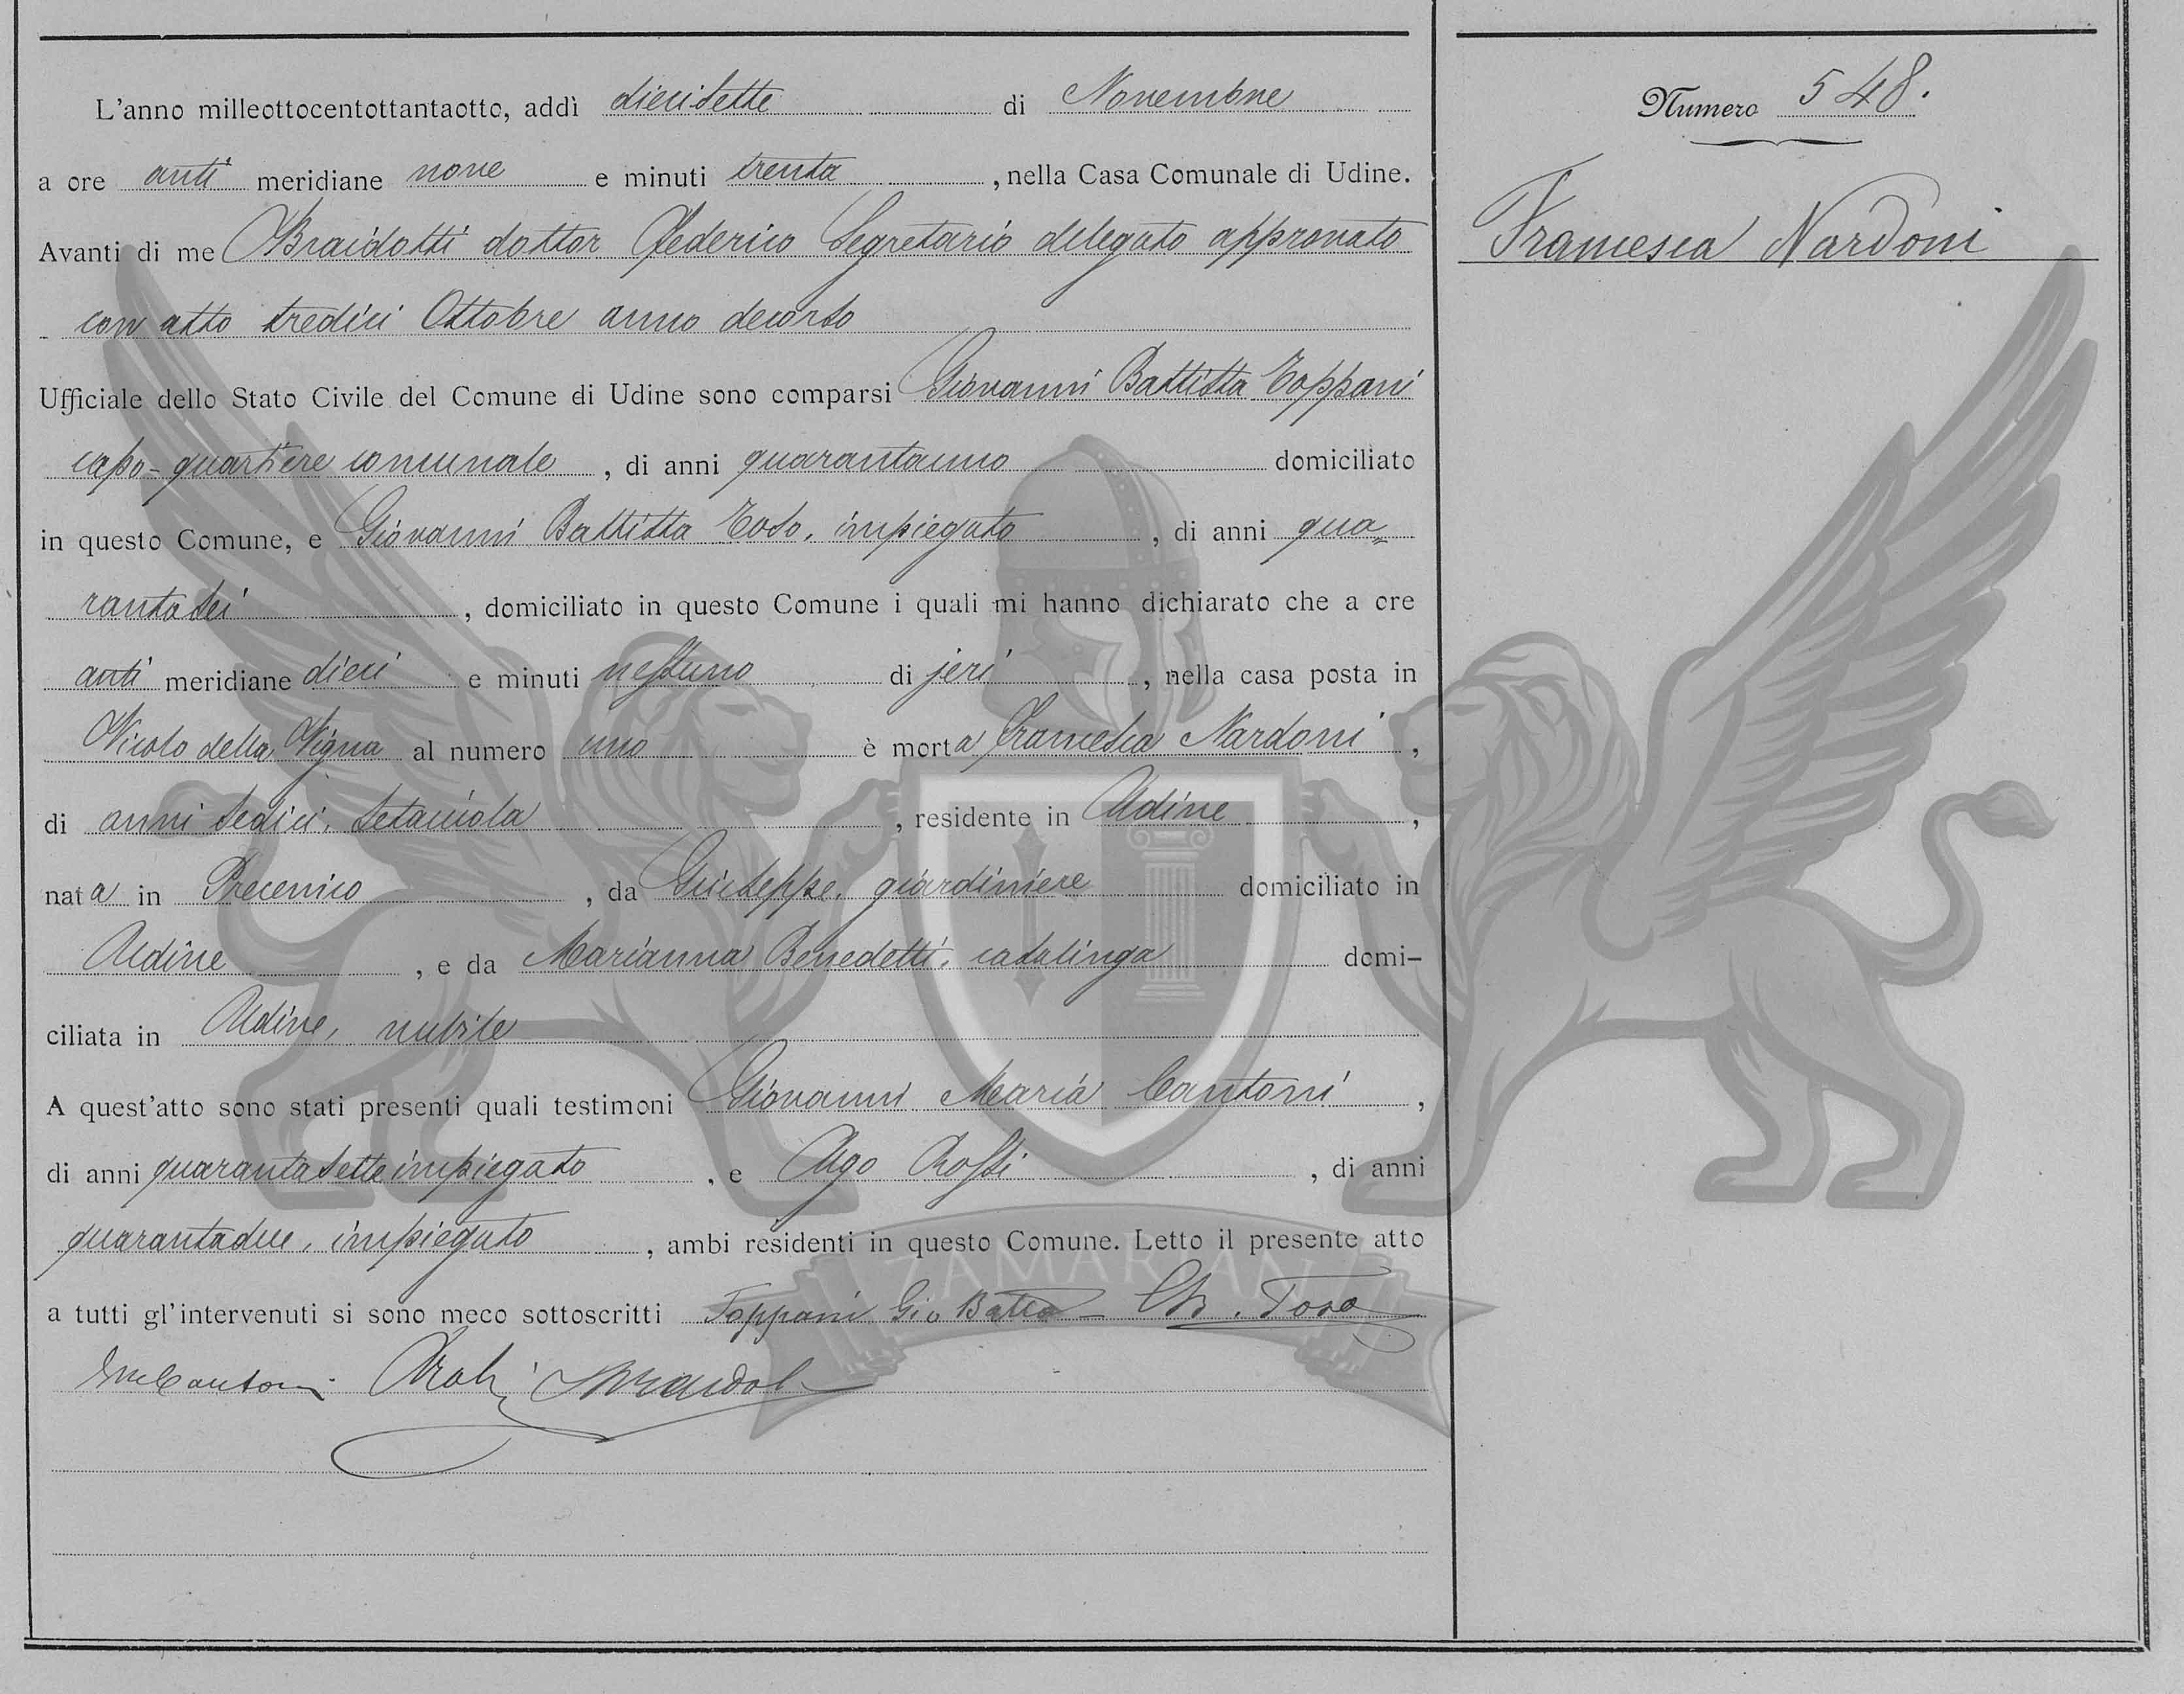 Numero 548.
Francesca Nardoni
L'anno milleottocentottantaotto, addì diecisette di Novembre
a ore anti meridiane nove e minuti trenta, nella Casa Comunale di Udine.
Avanti di me Braidotti dottor Federico Segretario delegato approvato
con atto tredici Ottobre anno decorso
Ufficiale dello Stato Civile del Comune di Udine sono comparsi Giovanni Battista Toppani
capo-quartiere comunale, di anni quarantauno domiciliato
in questo Comune, e Giovanni Battista Toso, impiegato, di anni qua=
rantasei, domiciliato in questo Comune i quali mi hanno dichiarato che a ore
anti meridiane dieci e minuti nessuno di jeri, nella casa posta in
Vicolo della Vigna al numero uno è morta Francesca Nardoni,
di anni sedici, setaiuola, residente in Udine,
nata in Precenico, da Giuseppe, giardiniere domiciliato in
Udine, e da Marianna Benedetti, casalinga domi-
ciliata in Udine, nubile
A quest'atto sono stati presenti quali testimoni Giovanni Maria Cantoni,
di anni quarantasette impiegato, e Ugo Rossi, di anni
quarantadue, impiegato, ambi residenti in questo Comune. Letto il presente atto
a tutti gl'intervenuti si sono meco sottoscritti Toppani Gio Batta Toso
GMCantoni
ZAMARIAN